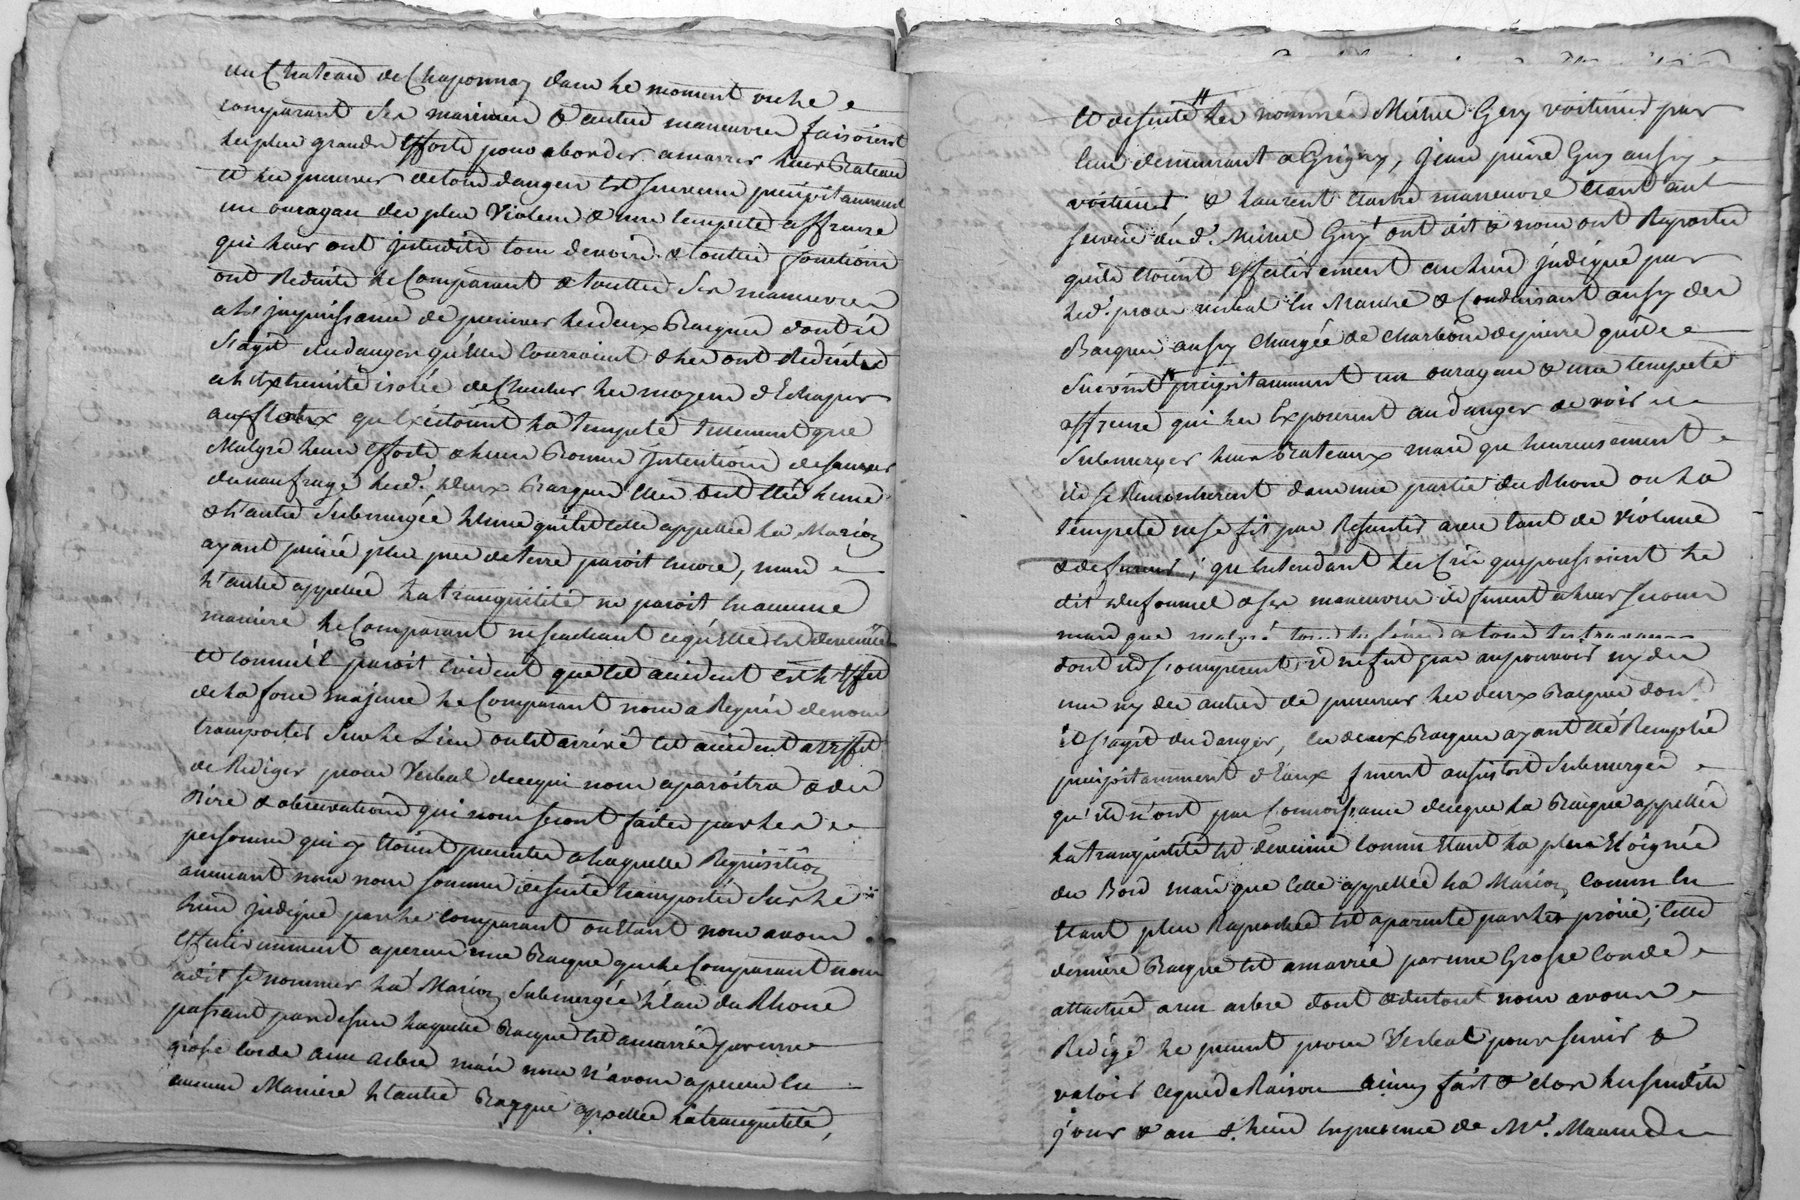 du Chateau de Chaponnay dans le moment ou le
comparant ses mariniers & autres maneuvres faisoient
les plus grands efforts pour aborder amarrer leurs Bateaux
et les preserver de tout danger est survenu precipitamment
un ouragan des plus Violens & une tempeste affreuse
qui leur ont interdits tous devoirs & toutes fonctions
ont Reduits le Comparant & touttes ses maneuvres
a l'impuissance de preserver les deux Barques dont il
s'agit du danger qu'elles Courroient & les ont Reduites
a l'extremité isolée de Chercher les moyens d'Echaper
aux flots qu'Excitoient la tempete tellement que
Malgré leurs efforts & leurs Bonnes intentions de sauver
du naufrage lesd. deux Barques elles ont été l'une
& l'autre Submergée l'une qui est celle appellée la Marion
ayant prisée plus pres de terre paroit encore, mais
l'autre appellée la tranquilité ne paroit en aucune
maniere le Comparant ne scachant ce qu'elle est devenüe
et comme il paroit evident que cet accident est l'effet
de la force majeure le Comparant nous a Requis de nous
transporter sur le Lieu ou est arrivé cet accident a l'effet
de Rediger procès Verbal de ce qui nous aparoitra & des
dire & observations qui nous seront faites par les
personnes qui y etoient presentes a laquelle Requisition
annuant nous nous sommes de suite transportés sur le
lieu indiqué par le comparant ou etant nous avons
effectivement aperceu une Barque que le Comparant nous
a dit se nommer la Marion Submergée l'eau du Rhone
passant par dessus laquelle Barque est amarrée par une
grosse corde a un arbre mais nous n'avons aperceu en
aucune Maniere l'autre Barque appellée la tranquilité,
et de suite les nommés Michel Guy voiturier par
Eau demeurant a Grigny, Jean pierre Guy aussy
voiturier, & laurent maneuvre etant au
service du d. Michel Guy ont dit & nous ont Raporté
qu'ils etoient effectivement au lieu indiqué par
led. procès verbal en Marche & Conduisant aussy des
Barques aussy Chargée de charbons de pierre qu'il
survint precipitamment un ouragan & une tempete
affreuse qui les Exposerent au danger de voir
Submerger leurs Bateaux mais que heureusement
ils se Rencontrerent dans une partie du Rhone ou la
tempete ne se fit pas Resentir avec tant de violence
& de fureur; qu'entendant les Cris que poussoient le
dit & ses maneuvres ils furent a leur secours
mais que malgré tous les soins & tous les travaux
dont ils s'occuperent, il ne fut pas au pouvoir ny des
uns ny des autres de preserver les deux Barques dont
il s'agit du danger, les deux Barques ayant été Remplies
precipitamment d'Eaux furent aussitost Submergée
qu'ils n'ont pas Connoissance de ce que la Barque appellée
la tranquilité est devenüe comme etant la plus Eloignée
du Bord mais que celle appellée la Marion comme en
etant plus Raprochée est aparente par les proüe; cette
derniere Barque est amarrée par une Grosse Corde
attachée a un arbre dont & du tout nous avons
Redigé le present procès Verbal pour servir &
valoir ce que de Raison ainsy fait & clos les susdits
jour & an & lieu en presence de Me.